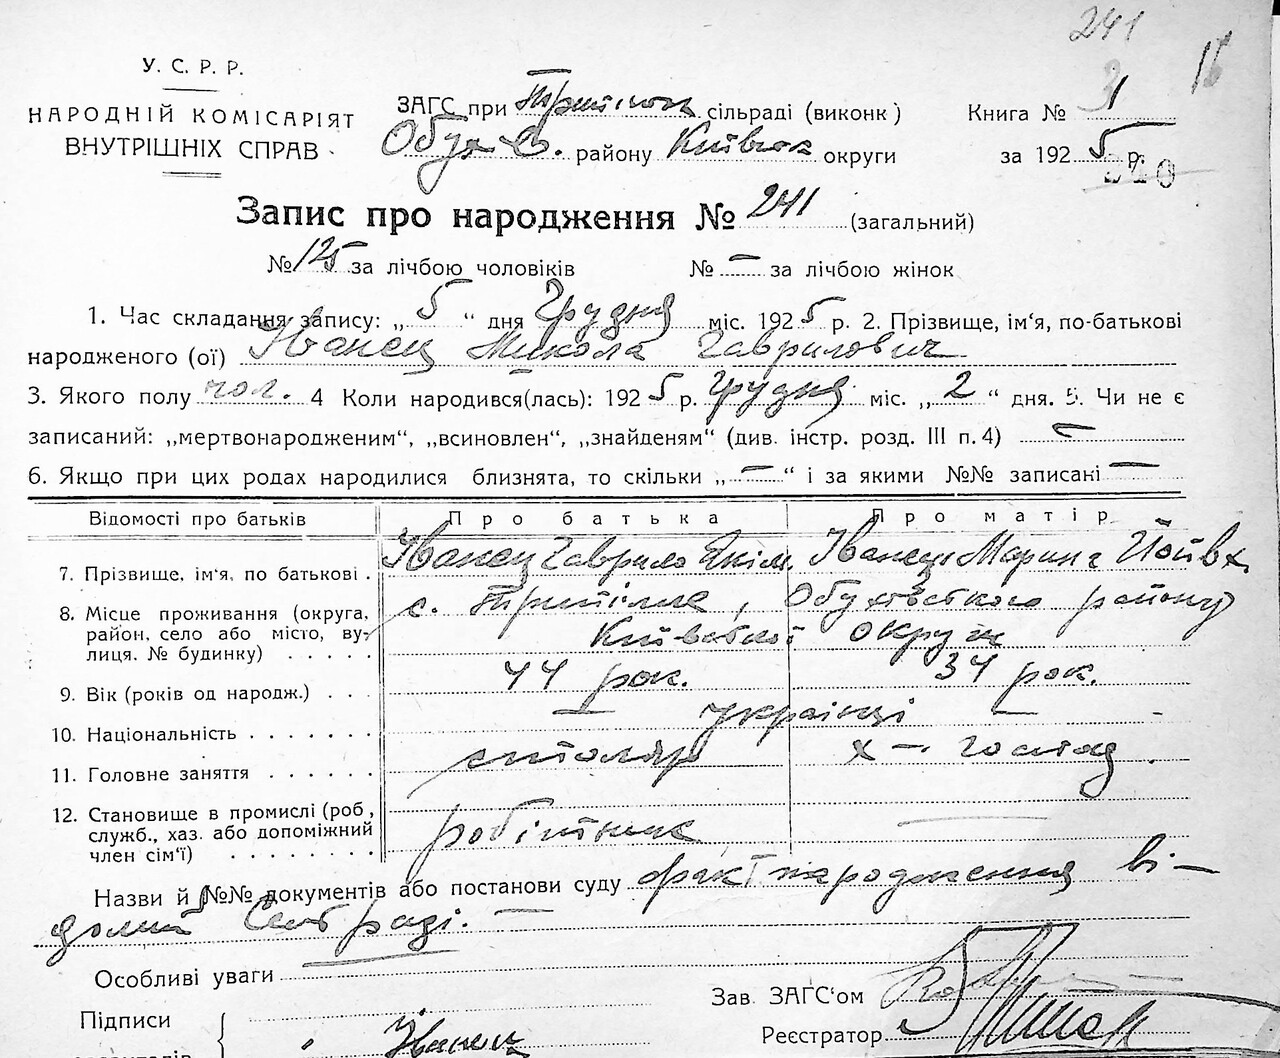 241
У. С. Р. Р.
НАРОДНІЙ КОМІСАРІЯТ
ВНУТРІШНІХ СПРАВ
ЗАГС при сільраді (виконк)
Обух. району Київськ округи
Книга № 31
за 1925 р.
240
Запис про народження № 241 (загальний)
№ 125 за лічбою чоловіків № — за лічбою жінок
1. Час складання запису: „ 5 “ дня Грудня міс. 1925 р. 2. Прізвище, ім‘я, по-батькові
народженого (ої) Іванец Микола Гаврилович
3. Якого полу чол. 4 Коли народився(лась): 1925 р. Грудня міс. „ 2 “ дня. 5. Чи не є
записаний: „мертвонародженим“, „всиновлен“, „знайденям“ (див. інстр. розд. III п. 4) —
6. Якщо при цих родах народилися близнята, то скільки „ — “ і за якими №№ записані —
Відомості про батьків Про батька Про матір
7. Прізвище, ім‘я, по батькові . Іванец Гаврило Яким. Іванец Марина
8. Місце проживання (округа, район, село або місто, вулиця, № будинку) . . . . . с. Трипілля, Обухівського району
Київської округи
9. Вік (років од народж.) . . . 44 рок. 34 рок.
10. Національність . . . . . . . — українці —
11. Головне заняття . . . . . . столяр х—. господ.
12. Становище в промислі (роб., служб., хаз. або допоміжний член сім‘ї) . . . . . . . робітник —
Назви й №№ документів або постанови суду факт народження ві-
домий Сельраді. —
Особливі уваги
Зав. ЗАГС‘ом
Підписи
Реєстратор
Іванец